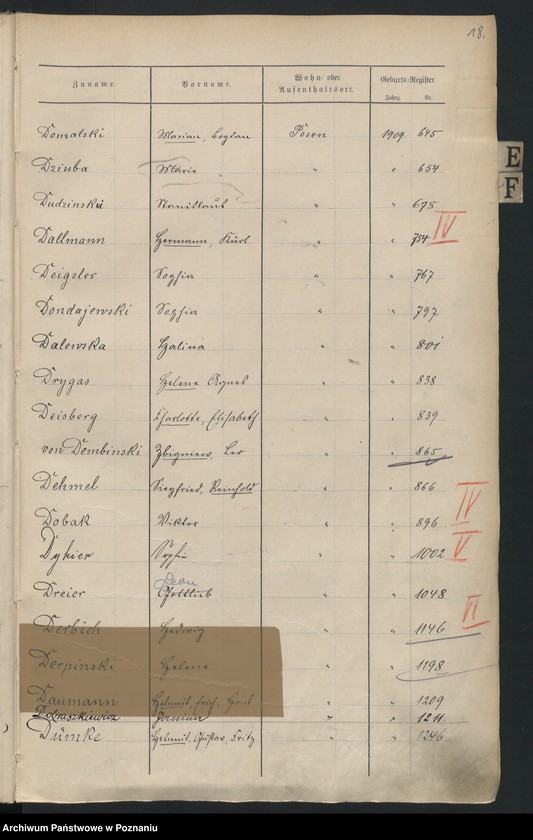 18.
Zuname. Vorname. Wohn- oder Aufenthaltsort. Geburts-Register
Jahrg. Nr.
Domalski Marian, Bogdan Posen 1909 645
Dziuba Marie " " 654
Dudzinski Stanislaus " " 675
IV
Dallmann Hermann, Kurt " " 754
Deigster Sophia " " 767
Dondajewski Sophia " " 797
Dalewska Halina " " 801
Drygas Helene Agnes " " 838
Deisberg Charlotte, Elisabeth " " 839
von Dembinski Zbigniew, Leo " " 865
Dehmel Siegfried, Reinhold " " 866
IV
Dobak Viktor " " 896
V
Dykier Sophie " " 1002
Leon
Dreier Gottlieb " " 1048
VI
Derbich Hedwig " " 1146
Derpinski Helene " " 1198
Daumann Helmut, Erich, Horst " " 1209
" " 1211
Dümke Helmut, Gustav, Fritz " " 1246
E
F
Archiwum Państwowe w Poznaniu